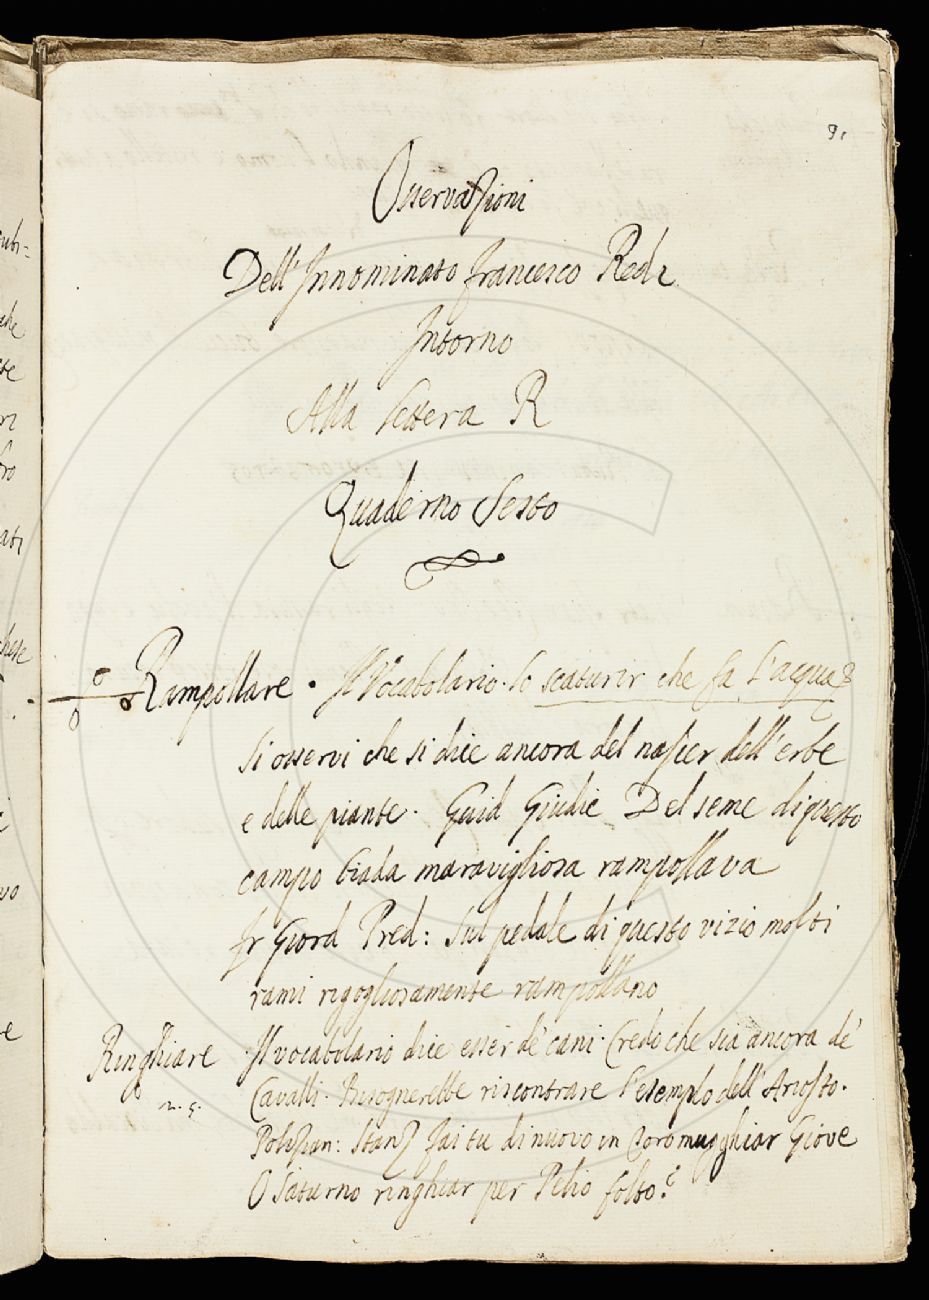 91
Osservazioni
Dell'Innominato Francesco Redi
Intorno
Alla lettera R
Quaderno Sesto
Rampollare. Il Vocabolario. Lo scaturir che fa l'acqua
si osservi che si dice ancora del nascer dell'erbe
e delle piante. Guid Giudic Del seme di questo
campo biada maravigliosa rampollava
Fr Giord Pred: Sul pedale di questo vizio molti
rami rigogliosamente rampollano
Ringhiare Il vocabolario dice esser de' cani. Credo che sia ancora de'
n. s. Cavalli. Bisognerebbe riscontrare l'esemplo dell'Ariosto.
Polizian: Stanz fai tu di nuovo in Toro mugghiar Giove
O Saturno ringhiar per Pelio folto?